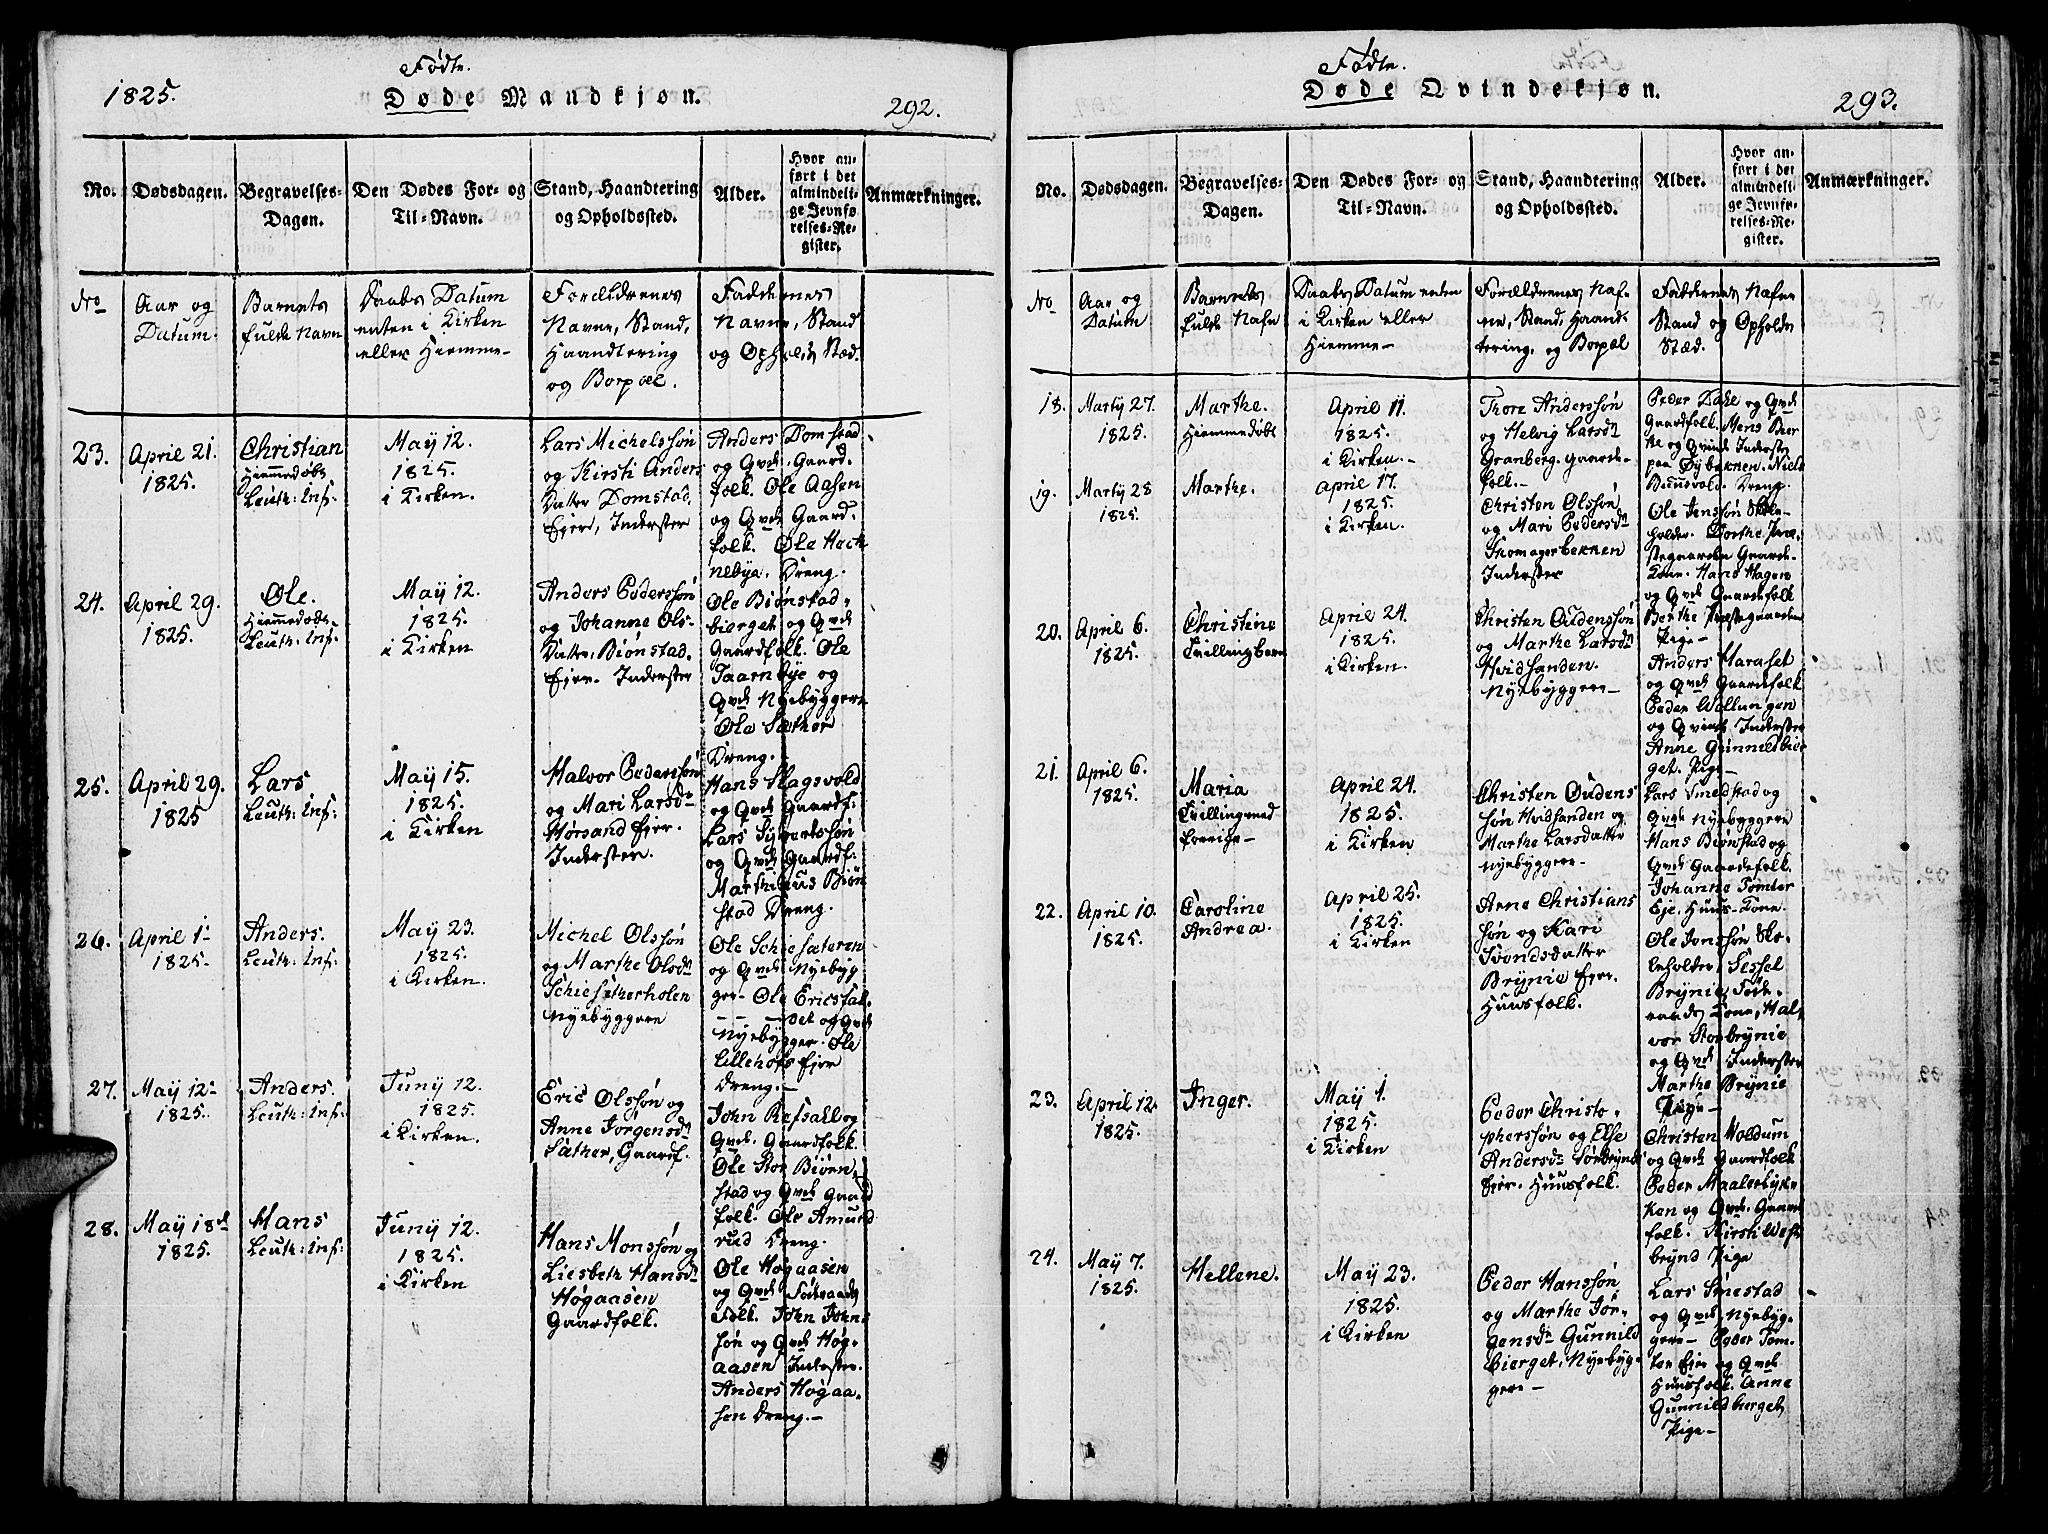 1825.
Fødte.
Døde Mandkjøn.
292.
No.
Dødsdagen.
Begravelses-
Dagen.
Den Dødes For- og
Til-Navn.
Stand, Haandtering
og Opholdssted.
Alder.
Hvor an-
ført i det
almindeli-
ge Jevnfø-
relses-Re-
gister.
Anmærkninger.
No
Aar og
Datum.
Barnets
fulde Navn
Daabs Datum
enten i Kirken
eller Hiemme-
Forældrenes
Navne, Stand,
Haandtering
og Bopæl.
Faddernes
Navne, Stand
og Opholds Stæd.
23.
April 21.
1825.
Christian
Hiemmedøbt
Leuth: Inf:
May 12.
1825.
i Kirken.
Lars Michelssøn
og Kirsti Anders
Datter Domstad
Ejer, Inderster
Anders Domstad
og Qvde, Gaard-
folk. Ole Aasen
og Qvde Gaard-
folk. Ole Heck
nebya, Dreng.
24.
April 29.
1825.
Ole.
Hiemmedøbt-
Leuth: Inf:
May 12.
1825.
i Kirken
Anders Pederssøn
og Johanne Ols-
Datter, Biønstad-
Ejer- Inderster
Ole Biønstad-
bierget og Qvde
Gaardfolk. Ole
Taarnbye og
Qvde Nyebyggere
Ole Sæther
Dreng.
25.
April 29.
1825
Lars
Leuth: Inf:
May 15.
1825.
i Kirken
Halvor Pederssøn
og Mari Larsdr
Hørsand Ejer.
Inderster.
Hans Slagsvold
og Qvde Gaardf:
Lars Syvertssøn
og Qvde Gaardf:
Marthinus Biøn
stad Dreng.
26.
April 1-
1825.
Anders.
Leuth: Inf:
May 23.
1825.
i Kirken.
Michel Olssøn
og Marthe Olsdr
Schiesætherholen
Nyebyggere
Ole Schiesæteren
og Qvde Nyebyg
ger- Ole Ericsfal-
- - - det og Qvde
Nyebygger. Ole
Lillehofs Ejer
Dreng.-
27.
May 12-
1825.
Anders.
Leuth: Inf:
Juny 12.
1825.
i Kirken.
Eric Olssøn og
Anne Jørgensdr
Sæther, Gaardf.
John Refsall og
Qvde. Gaardfolk.
Ole Stor Biøen
stad og Qvde Gaard
folk. Ole Amund
rud Dreng.
28.
May 18de
1825.
Hans
Leuth: Inf:
Juny 12.
1825.
i Kirken
Hans Monssøn og
Liesbeth Hansdr
Høgaasen
Gaardfolk.
Ole Høgaasen
og Qvde Føderaads
Folk. John John-
søn og Qvde Høg-
aasen Inderster.
Anders Høgaa-
sen Dreng.-
Fødte.
Døde Qvindekjøn.
293.
No.
Dødsdagen.
Begravelses-
Dagen.
Den Dødes For- og
Til-Navn.
Stand, Haandtering
og Opholdssted.
Alder.
Hvor an-
ført i det
almindeli-
ge Jevnfø-
relses-Re-
gister.
Anmærkninger.
No
Aar og
Datum
Barnets
fulde Nafn
Daabs Datum enten
i Kirken eller
Hiemme-
Forældrenes Naf-
ne, Stand, Haand-
tering, og Bopæl
Faddernes Nafne
Stand og Opholds
Stæd.
18.
Marty 27.
1825.
Marthe.
Hiemmedøbt
April 11.
1825.
i Kirken.-
Thore Anderssøn
og Helvig Larsdr
Granberg. Gaarde-
folk.-
Peder Dahl og Qvde
Gaardfolk. Mons Bier
ke og Qvinde Inderster
paa Øybakken. Niels
Bunnvold Dreng.
19.
Marty 28
1825.
Marthe.
April 17.
1825.
i Kirken.
Christen Olssøn
og Mari Pedersdr
Thomagerbakken
Inderster
Ole Jenssøn Skole-
holder. Dorthe Præ-
stegaarden Gaarde-
Kone. Hans Hagen
og Qvde Gaardefolk
Berthe Præstegaarden
Pige-
20.
April 6.
1825.
Christine
Tvillingbarn
April 24.
1825.
i Kirken.
Christen Oudenssøn
og Marthe Larsdr
Hvidsanden.
Nyebyggere-
Anders Haraset
og Qvde Gaardefolk
Peder Wollungen
og Qvinde Inderster
Anne Gunnildbier
get. Pige-
21.
April 6.
1825.
Maria
Tvilling med
forrige-
April 24.
1825.
i Kirken
Christen Oudens
søn Hvidsanden og
Marthe Larsdatter
Nyebyggere-
Lars Smedstad og
Qvde Nyebyggere
Hans Biønstad og
Qvde Gaardefolk.
Johanne Tomter
Eje. Huus-Kone.
22.
April 10.
1825.
Caroline
Andrea.
April 25.
1825.
i Kirken
Arne Christians
søn og Kari
Trondsdatter
Brynie Ejer.
Huusfolk.
Ole Jonssøn Sko-
leholder, Sessel
Brynie, Føde-
raads Kone, Hal-
vor Storbrynie
og Qvde Inderster
Marthe Brynie
Pige-
23.
April 12.
1825.
Inger.
May 1.
1825.
i Kirken
Peder Christo-
pherssøn og Else
Andersdr Sørbrynd
Ejer. Huusfolk.
Christen Moldum
og Qvde Gaardfolk
Peder Maalerbyk-
ken og Qvde. Gaard
folk. Kirsti West
brynd Pige
24.
May 7.
1825.
Hellene.
May 23.
1825.
i Kirken
Peder Hanssøn
og Marthe Jør-
gensdr Gunnild
bierget, Nyebyg-
gere-
Lars Smestad
og Qvde, Nyebyg-
gere- Peder Tom-
ter Ejer og Qvde
Huusfolk. Anne
Gunnildberget
Pige-